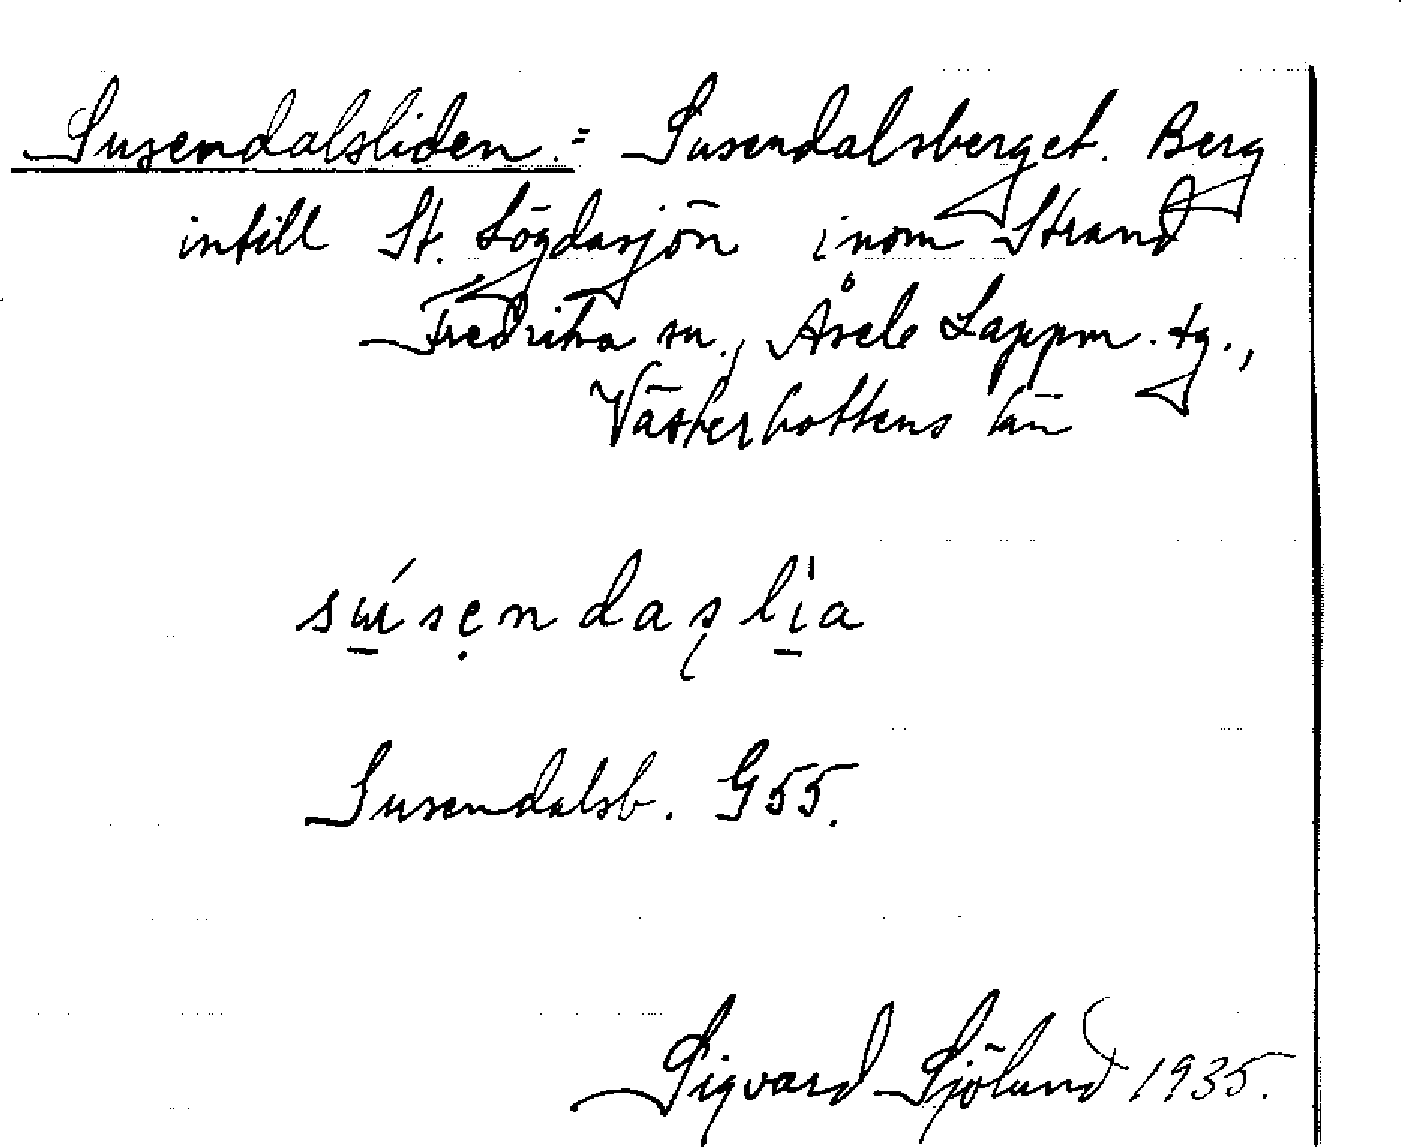 Susendalsliden. = Susendalsberget. Berg
intill St. Lögdasjön inom Strand
Fredrika sn., Åsele Lappm. tg.,
Västerbottens län
sɯ́sẹndaʂlia
Susendalsb. G55.
Sigvard Sjölund 1935.